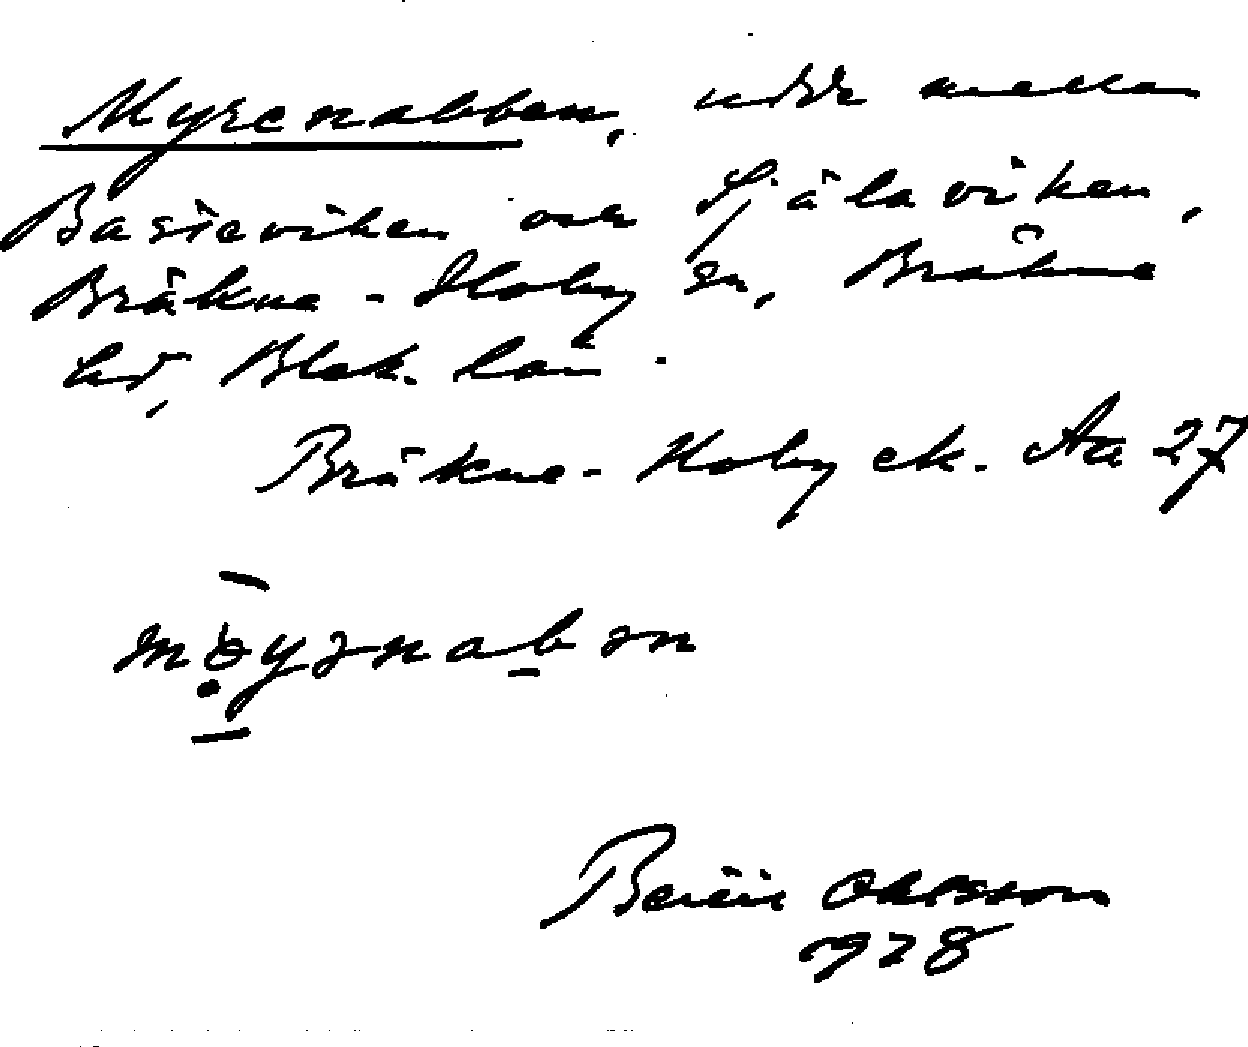 Myrenabben, udde mellan
Basteviken och Själaviken,
Bräkne-Hoby sn, Bräkne
hd, Blek. län.
Bräkne-Hoby ek. Aa 27
Ohlsson
1928